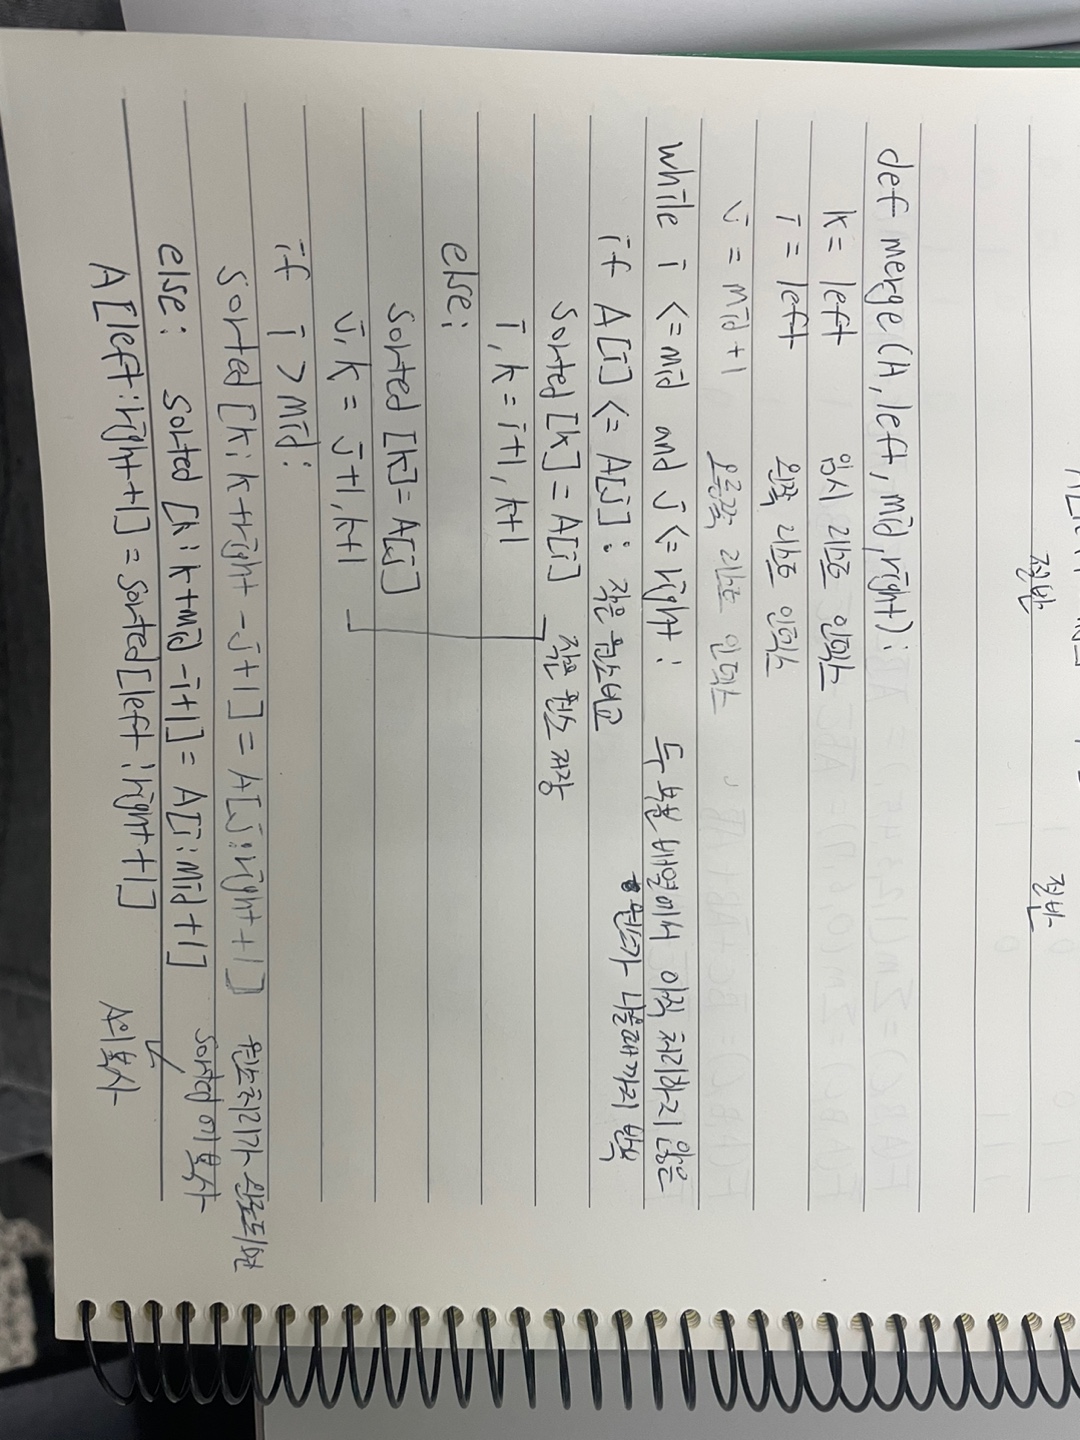 절반 절반
def merge(A, left, mid, right):
k = left 임시 리스트 인덱스
i = left 왼쪽 리스트 인덱스
j = mid+1 오른쪽 리스트 인덱스
while i <= mid and j <= right : 두 부분 배열에서 아직 처리하지 않은
원소가 나올때까지 반복
if A[i] <= A[j] : 작은 원소 비교
sorted [k] = A[i] 작은 원소 저장
i, k = i+1, k+1
else:
sorted [k] = A[j]
j, k = j+1, k+1
if i > mid :
sorted [k : k+right -j+1] = A[j : right +1] 원소처리가 완료되면
sorted에 복사
else : sorted [k : k+mid -i+1] = A[i : mid +1]
A[left : right +1] = sorted[left : right +1] A에 복사